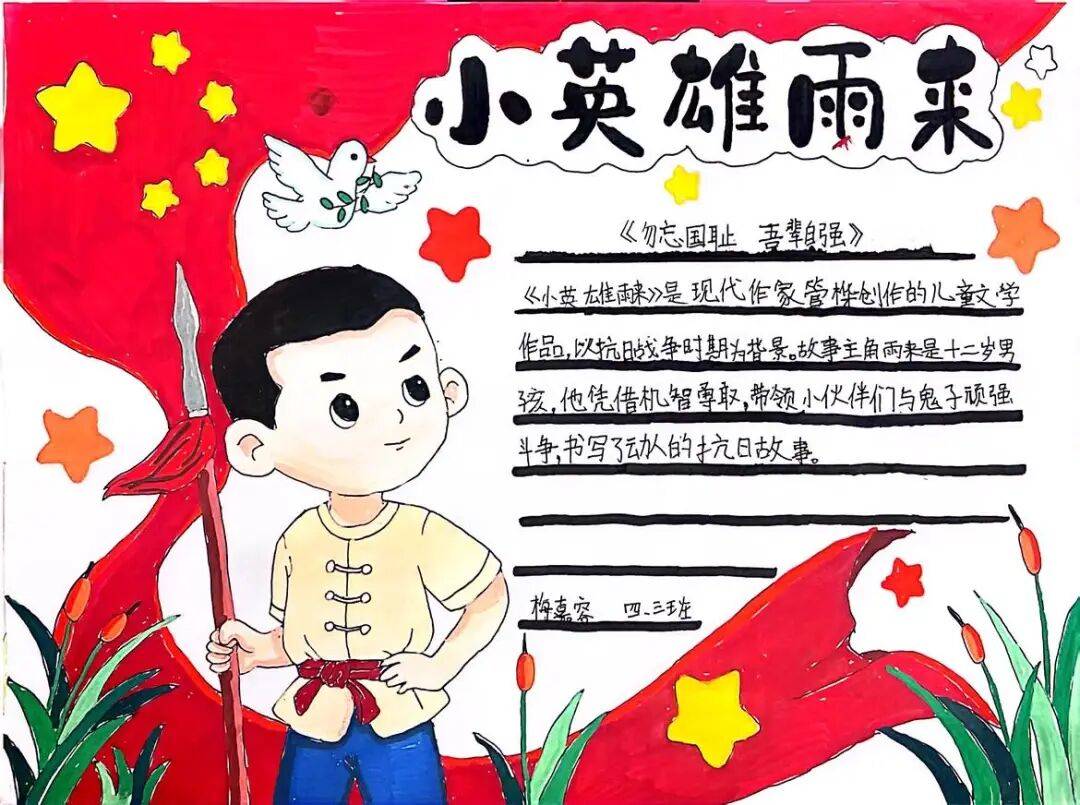 小英雄雨来
《勿忘国耻 吾辈自强》
《小英雄雨来》是现代作家管桦创作的儿童文学
作品,以抗日战争时期为背景。故事主角雨来是十二岁男
孩,他凭借机智勇敢,带领小伙伴们与鬼子顽强
斗争,书写了动人的抗日故事。
梅嘉容 四.三班